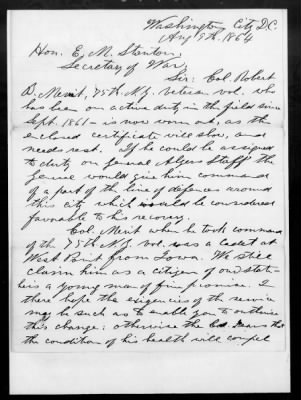 Washington City, D.C.
Aug 9th, 1864
Hon. E. M. Stanton,
Secretary of War,
Sir: Col. Robert
B. Merrit, 75th N.Y. Veteran vol. who
has been on active duty in the field since
Sept. 1861 - is now worn out, as the
enclosed certificate will show, and
needs rest. If he could be assigned
to duty on General Staff the
General would give him command
of a part of the line of defences around
this city which would be considered
favorable to his recovery.
Col. Merit when he took command
of the 75th N.Y. vol. was a cadet at
West Point from Iowa. We still
claim him as a citizen of our state -
he is a young man of fine promise. I
there hope the exigencies of the service
may be such as to enable you to
this change: otherwise the Col. fears that
the condition of his health will compel